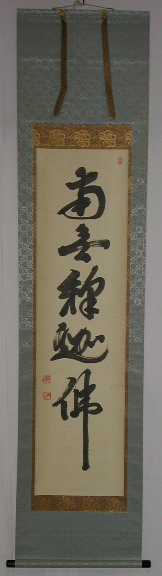 南無釋迦佛